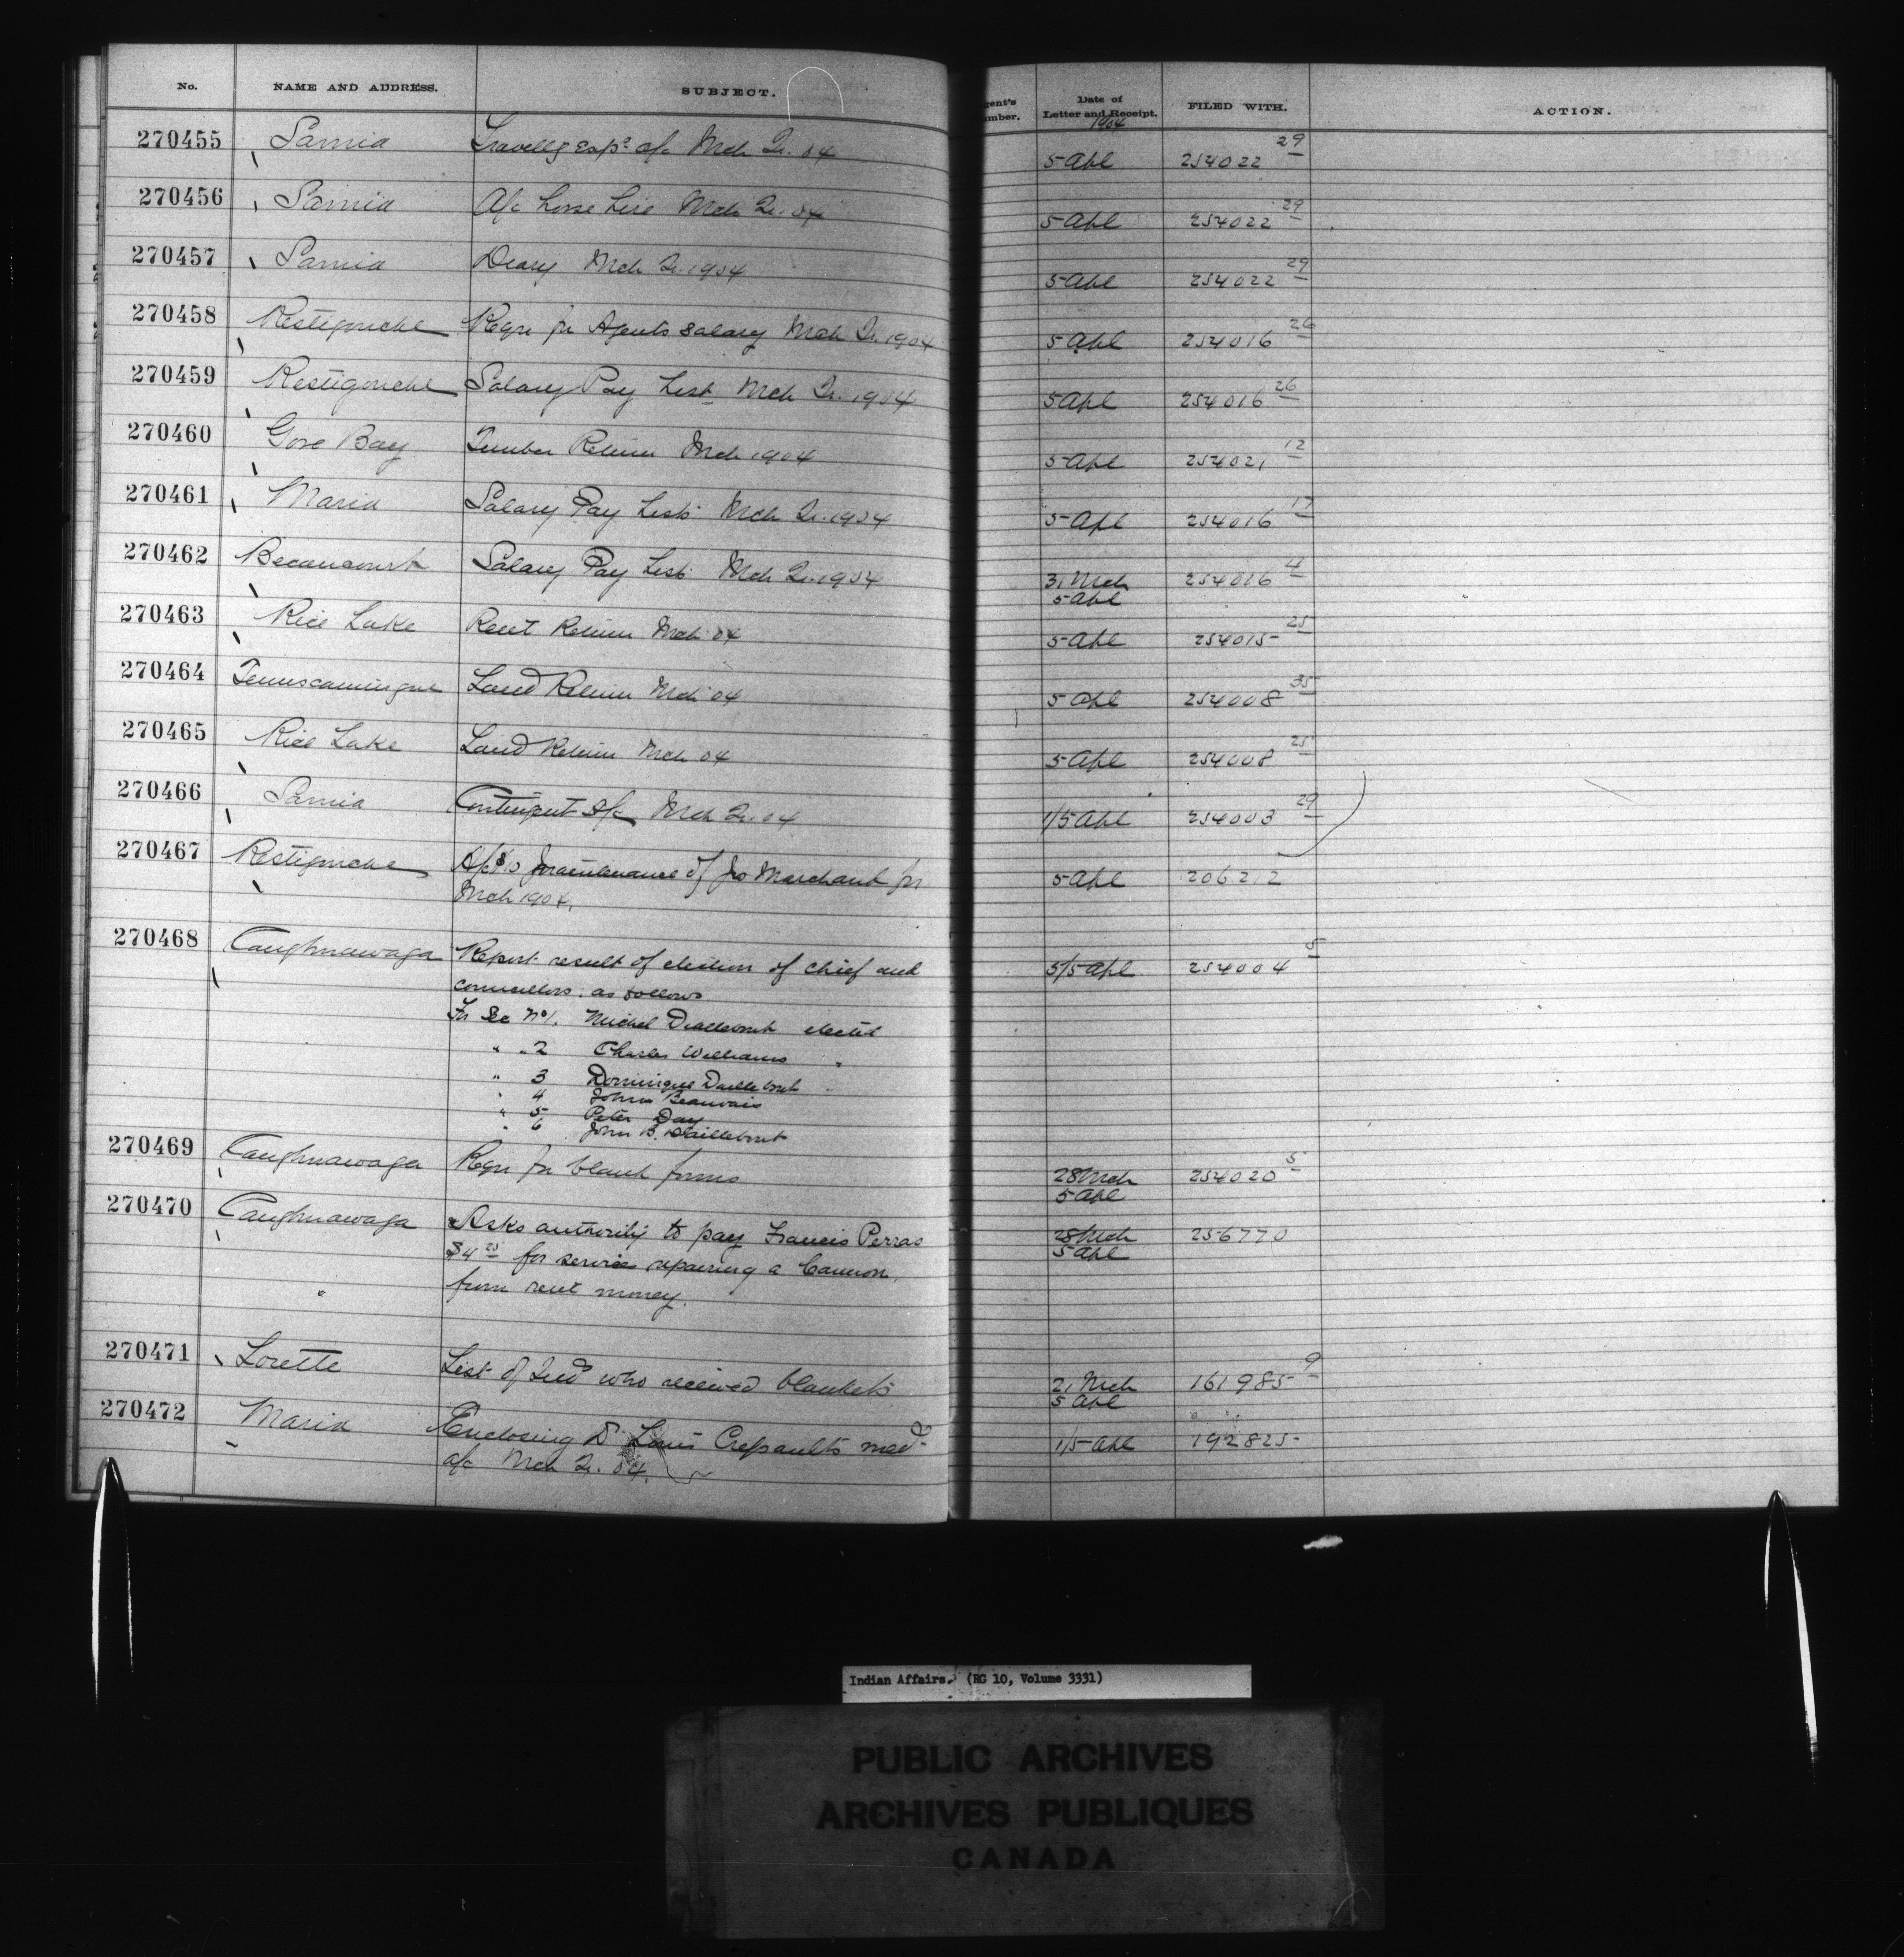 No. NAME AND ADDRESS. SUBJECT. gent's umber. Date of Letter and Receipt. FILED WITH. ACTION.
1904
270455 Sarnia Travellg Exps a/c Mch Qr. 04 5 Apl 254022 29
270456 Sarnia A/c horse hire Mch Qr. 04 5 Apl 254022 29
270457 Sarnia Diary Mch Qr. 1904 5 Apl 254022 29
270458 Restigouche Reqn for Agents salary Mch Qr. 1904 5 Apl 254016 26
270459 Restigouche Salary Pay List Mch Qr. 1904 5 Apl 254016 26
270460 Gore Bay Timber Return Mch 1904 5 Apl 254021 12
270461 Maria Salary Pay List Mch Qr. 1904 5 Apl 254016 17
270462 Becancourt Salary Pay List Mch Qr. 1904 31 Mch 254016 4
5 Apl
270463 Rice Lake Rent Return Mch 04 5 Apl 254015 25
270464 Temiscamingue Land Return Mch 04 5 Apl 254008 35
270465 Rice Lake Land Return Mch 04 5 Apl 254008 25
270466 Sarnia Contingent a/c Mch Qr. 04 1/5 Apl 254003 29
270467 Restigouche A/c $10 maintenance of Jno Marchant for 5 Apl 206212
Mch 1904.
270468 Caughnawaga Report result of election of chief and 5/5 Apl 254004 5
councillors. as follows
For Sec No 1. Michel Daillebout elected
" " 2 Charles Williams "
" 3 Dominique Daillebout "
" 4 John Beauvais
" 5 Peter Day
" 6 John B. Daillebout
270469 Caughnawaga Reqn for blank forms 28 Mch 254020 5
5 Apl
270470 Caughnawaga Asks authority to pay Francis Perras 28 Mch 256770
$4 25 for services repairing a Cannon, 5 Apl
from rent money.
270471 Lorette List of Inds who received blankets 21 Mch 161985 9
5 Apl
270472 Maria Enclosing Dr Louis Crepaults med. 1/5 Apl 192825
a/c Mch Qr. 04.
Indian Affairs. (RG 10, Volume 3331)
PUBLIC ARCHIVES
ARCHIVES PUBLIQUES
CANADA